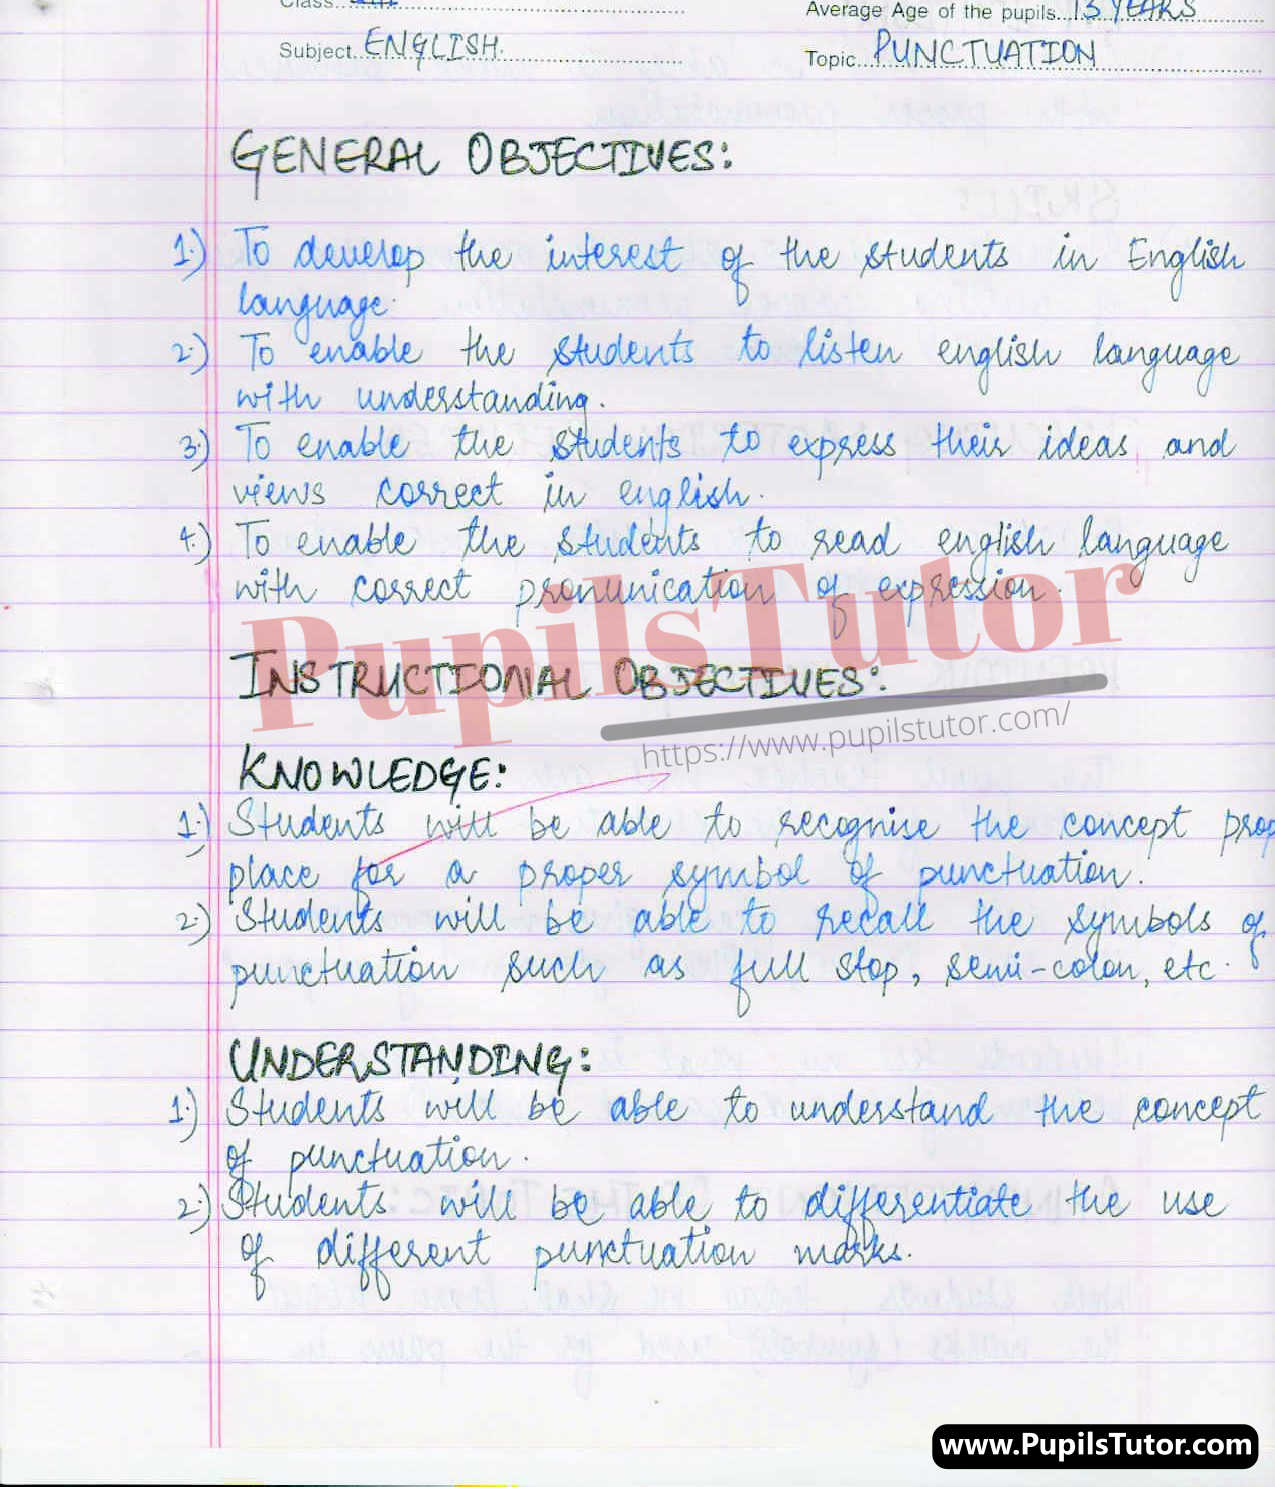 Class
Average Age of the pupils...13 YEARS
Subject...ENGLISH.
Topic...PUNCTUATION
GENERAL OBJECTIVES:
1.) To develop the interest of the students in English
language.
2.) To enable the students to listen english language
with understanding.
3.) To enable the students to express their ideas and
views correct in english.
4.) To enable the students to read english language
with correct pronunication of expression.
PupilsTutor
INSTRUCTIONAL OBJECTIVES:
https://www.pupilstutor.com/
KNOWLEDGE:
1.) Students will be able to recognise the concept prop
place for a proper symbol of punctuation.
2.) Students will be able to recall the symbols of
punctuation such as full stop, semi-colon, etc.
UNDERSTANDING:
1.) Students will be able to understand the concept
of punctuation.
2.) Students will be able to differentiate the use
of different punctuation marks.
www.PupilsTutor.com